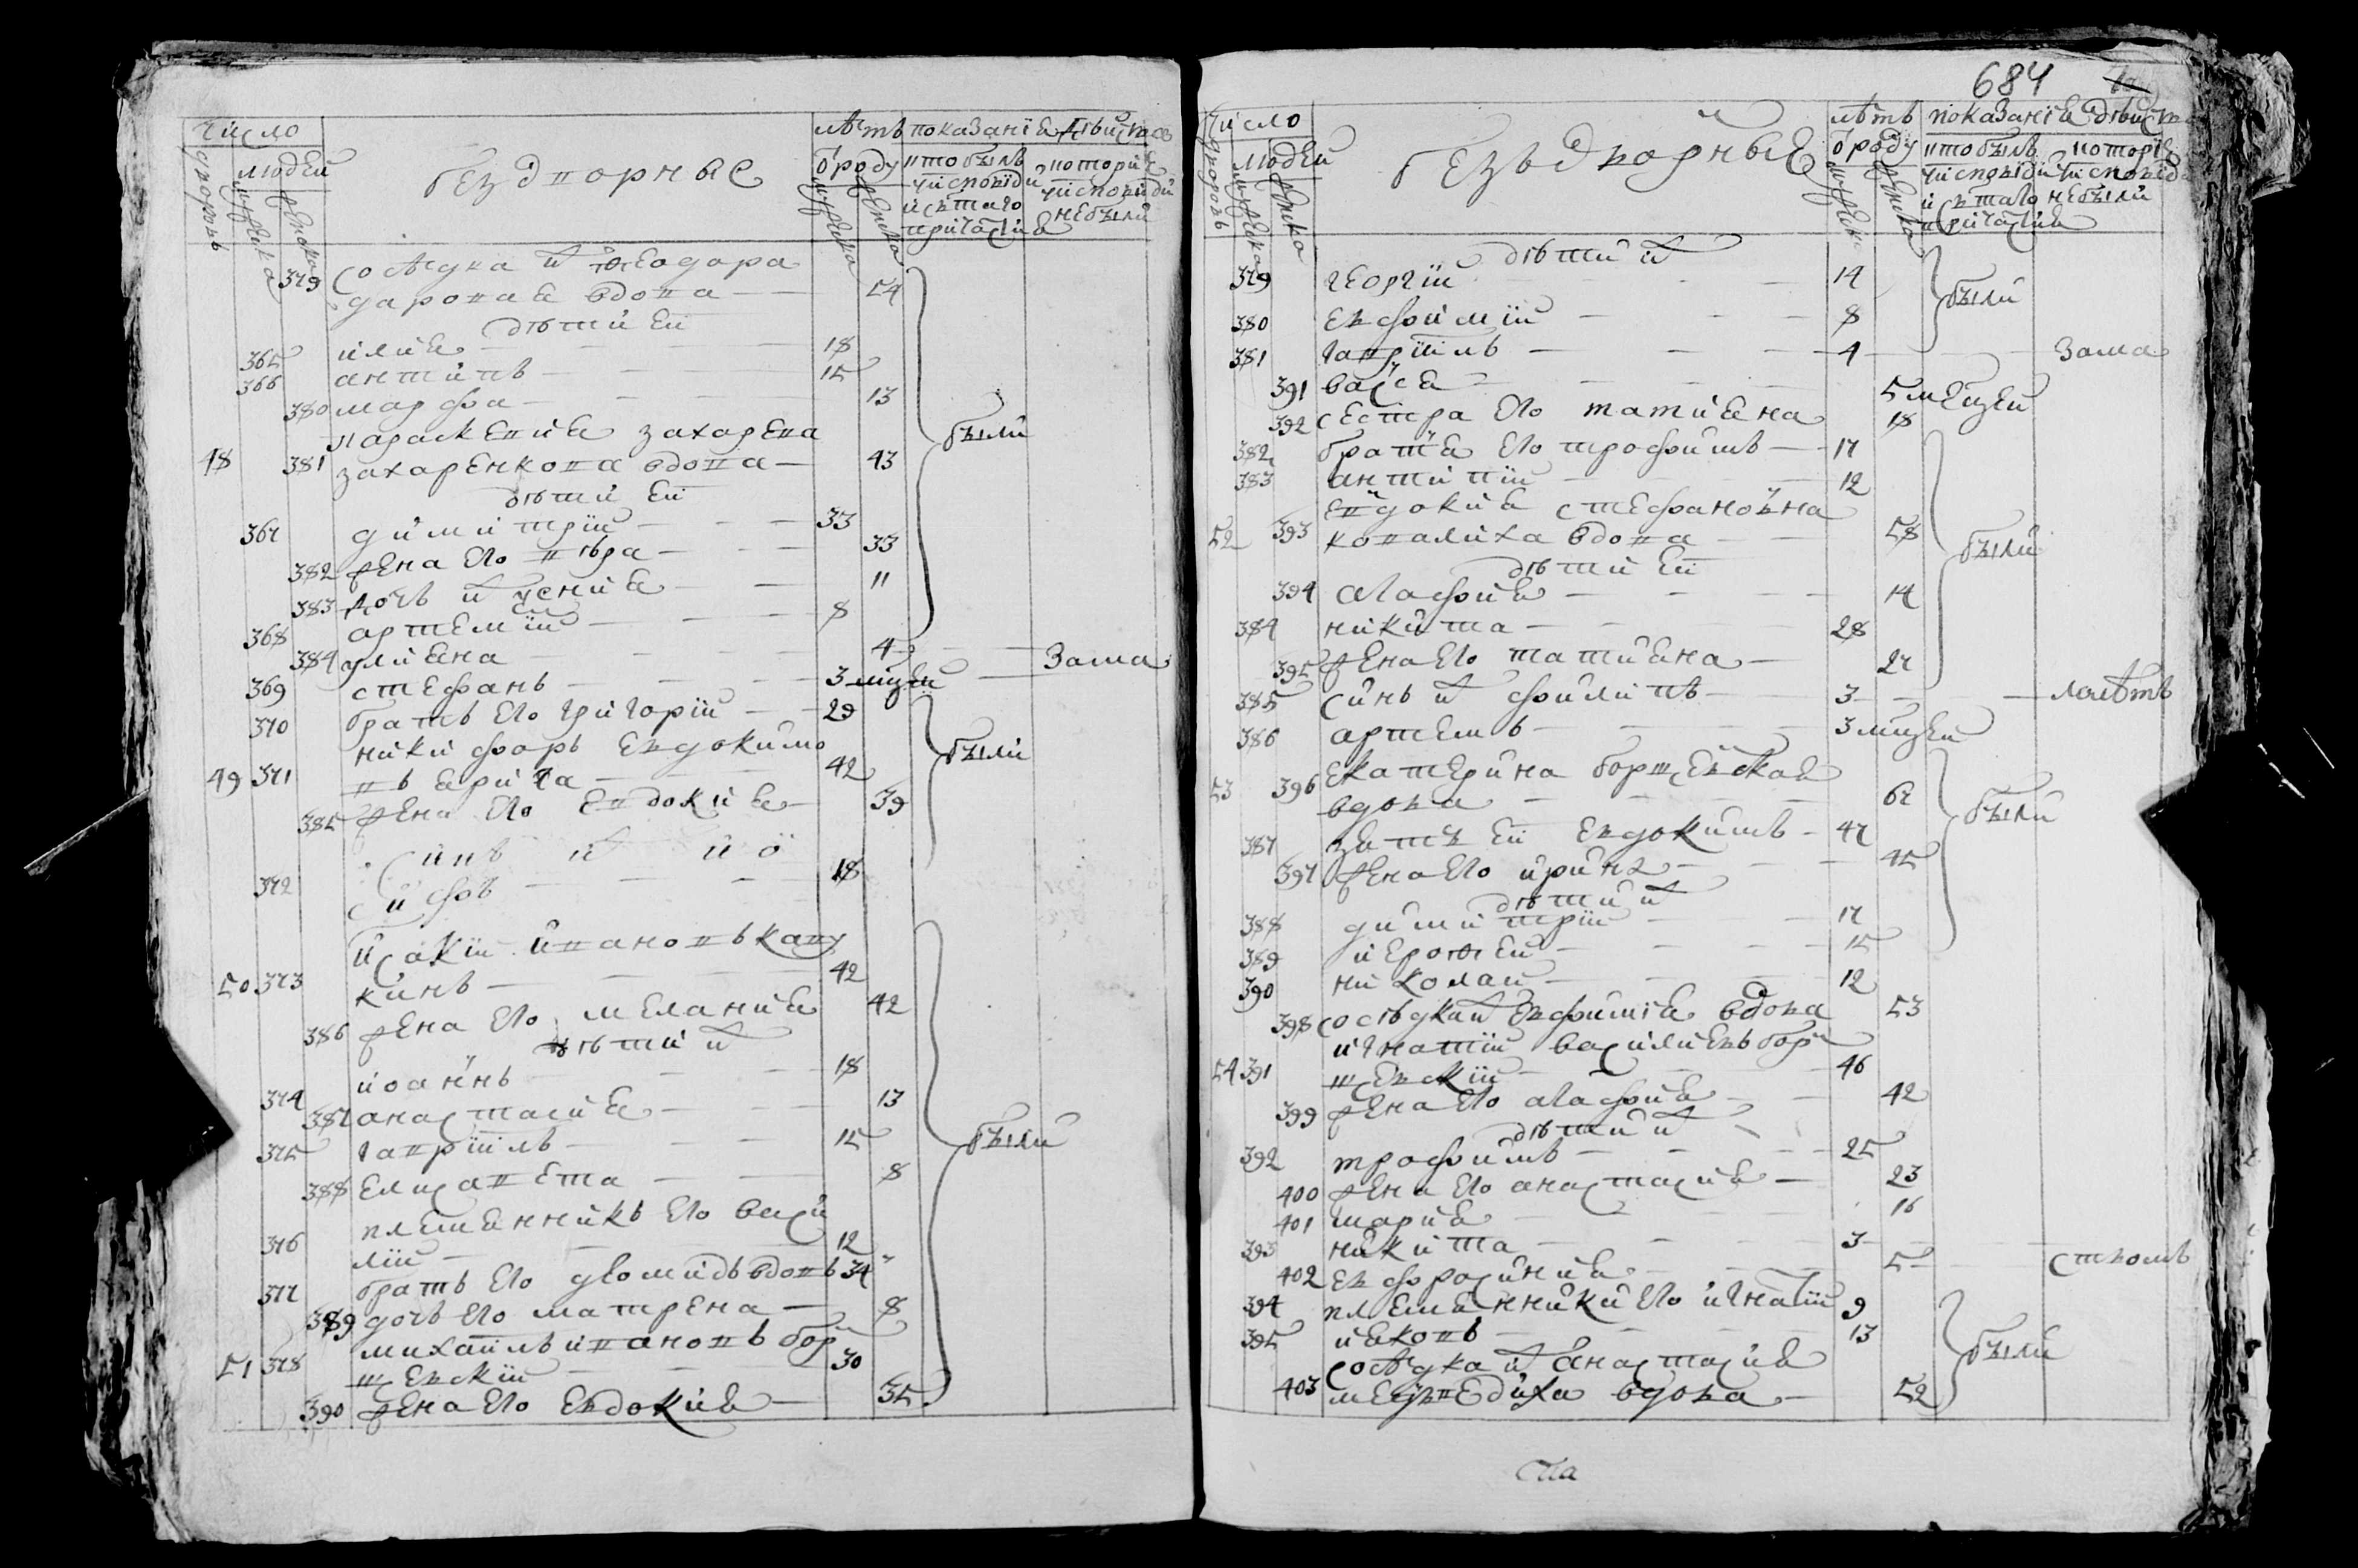 число
дворовъ
людей
мужеска
женска
бездворные
лѣтъ
ѿроду
мужеска
женска
показанїе дѣйства
кто былъ
у исповѣди
и свтаго
причастия
которїе
у исповѣди
небыли
379 сосѣдка и ѳеодора
даровая вдова 54
дѣти ей
365 илия 18
366 антипъ 15
380 марфа 13
параскевия захарева
48 381 захаренкова вдова 43
были
дѣти ей
367 димитрїй 33
382 жена его вѣра 33
383 дочъ ихъ ксения 11
368 артемїй 8
384 улияна 4 зама
369 стефанъ 3 мцей
370 братъ его григорїй 29
никифоръ евдокимо
49 371 въ 42
были
385 жена его евдокия 39
синъ ихъ ио
372 сифъ 18
исакїй ивановъ каву
50 373 кинъ 42
386 жена его мелания 42
дѣти ихъ
374 иоаннъ 18
387 анастасия 13
375 гаврїилъ 15
были
388 елисавета 8
племянникъ его васи
376 лїй 12
377 братъ его диомидъ вдовъ 34
389 дочъ его матрена 8
михаилъ ивановъ бор
51 378 щевскїй 30
390 жена его евдокия 35
684
число
дворовъ
людей
мужеска
женска
безъдворные
лѣтъ
ѿроду
мужеска
женска
показанїе дѣйства
кто былъ
у исповѣди
и свтаго
причастия
которїе
у исповѣди
небыли
дѣти ихъ
379 георгїй 14
были
380 евфимїй 8
381 гаврїилъ 4 зама
391 васса 5 мецей
392 сестра его татияна 18
382 братя его трофимъ 17
383 антипїй 12
евдокия стефановна
52 393 ковалиха вдова 58
были
дѣти ей
394 агафия 14
384 никита 28
395 жена его татияна 27
385 синъ ихъ филипъ 3 малѣтъ
386 артемъ 3 мцей
екатерина борщевская
53 396 вдова 67
были
387 зять ей евдокимъ 47
397 жена его ирина 45
дѣти ихъ
388 димитрїй 17
389 иероѳей 15
390 николай 12
398 сосѣдка ихъ евфимїя вдова 53
игнатїй василиевъ бор
54 391 щевскїй 46
399 жена его агафия 42
дѣти ихъ
392 трофимъ 25
400 жена его анастасия 23
401 мария 16
393 никита 3
402 евфросиния 5
394 племянники его игнатїй 9
395 ияковъ 13
были
сосѣдка ихъ анастасия
403 вдова 52